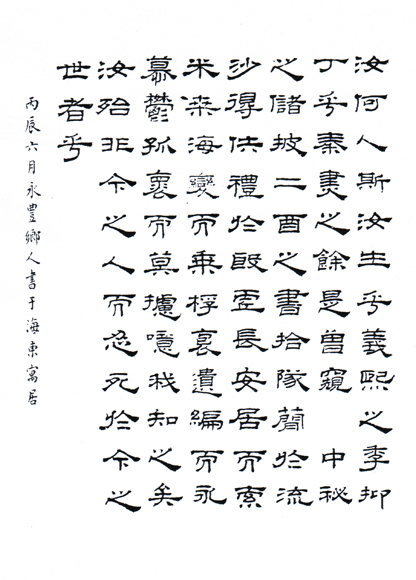 汝何人斯汝生乎義熙之季抑
丁乎秦燹之餘是曾窺 中秘
之儲披二酉之書拾隊簡於流
沙得佚禮於殷虛長安居而索
米桒海變而乘桴哀遺編而永
慕鬱孤褱而莫攄噫我知之矣
汝殆非今之人而忍死於今之
世者乎
丙辰六月永豐鄉人書于海東寓居